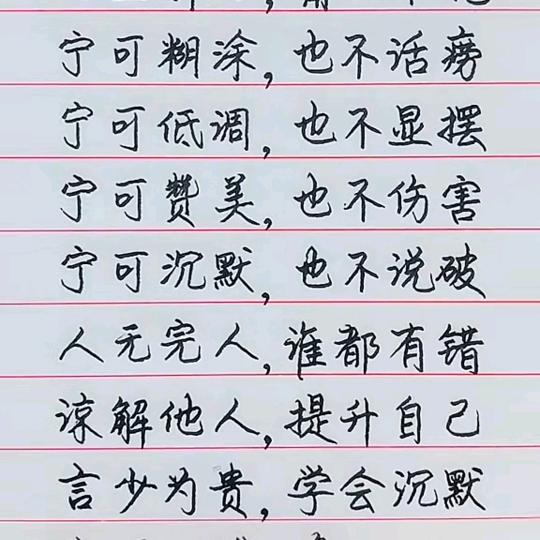 宁可糊涂,也不话痨
宁可低调,也不显摆
宁可赞美,也不伤害
宁可沉默,也不说破
人无完人,谁都有错
谅解他人,提升自己
言少为贵,学会沉默